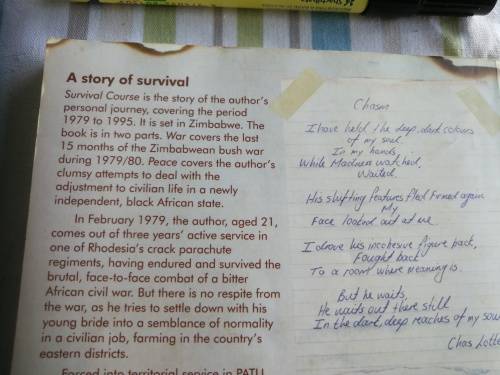 A story of survival
Survival Course is the story of the author's
personal journey, covering the period
1979 to 1995. It is set in Zimbabwe. The
book is in two parts. War covers the last
15 months of the Zimbabwean bush war
during 1979/80. Peace covers the author's
clumsy attempts to deal with the
adjustment to civilian life in a newly
independent, black African state.
In February 1979, the author, aged 21,
comes out of three years' active service in
one of Rhodesia's crack parachute
regiments, having endured and survived the
brutal, face-to-face combat of a bitter
African civil war. But there is no respite from
the war, as he tries to settle down with his
young bride into a semblance of normality
in a civilian job, farming in the country's
eastern districts.
Forced into territorial service in PATU
Chasm
I have held the deep, dark colours
of my soul,
In my hands,
While Madness watched,
Waited.
His shifting features fled formed again
My
Face looked out at me
I drove his incohesive figure back,
Fought back
To a room where meaning is.
But he waits,
He waits out there still
In the dark, deep reaches of my soul
Chas Lotter